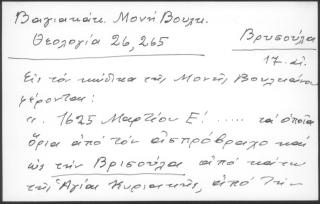 Βαγιακάκ. Μονή Βουλκ.
Θεολογία 26, 265
Βρυσούλα
17. αἰ.
Εἰς τόν κώδικα τῆς Μονῆς Βουλκάνου
φέρονται:
". 1625 Μαρτίου Ε! ..... τά ὁποῖα
ὅρια ἀπό τόν ἀσπρόβραχο καί
ὡς τήν Βρισούλα ἀπό κάτω
τῆς Ἁγίας Κυριακῆς, ἀπό τήν